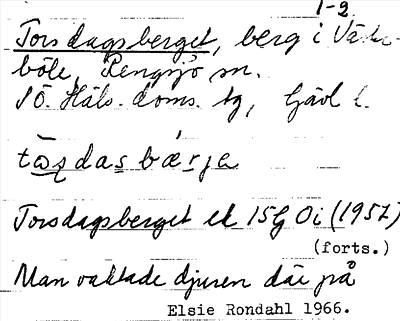 1-2
Torsdagsberget, berg i Väster-
böle, Rengsjö sn.
SÖ. Häls. doms. tg, Gävl l.
tɷʂdasbærjə
Torsdagsberget ek 15G 0i (1957)
(forts.)
Man vaktade djuren där på
Elsie Rondahl 1966.